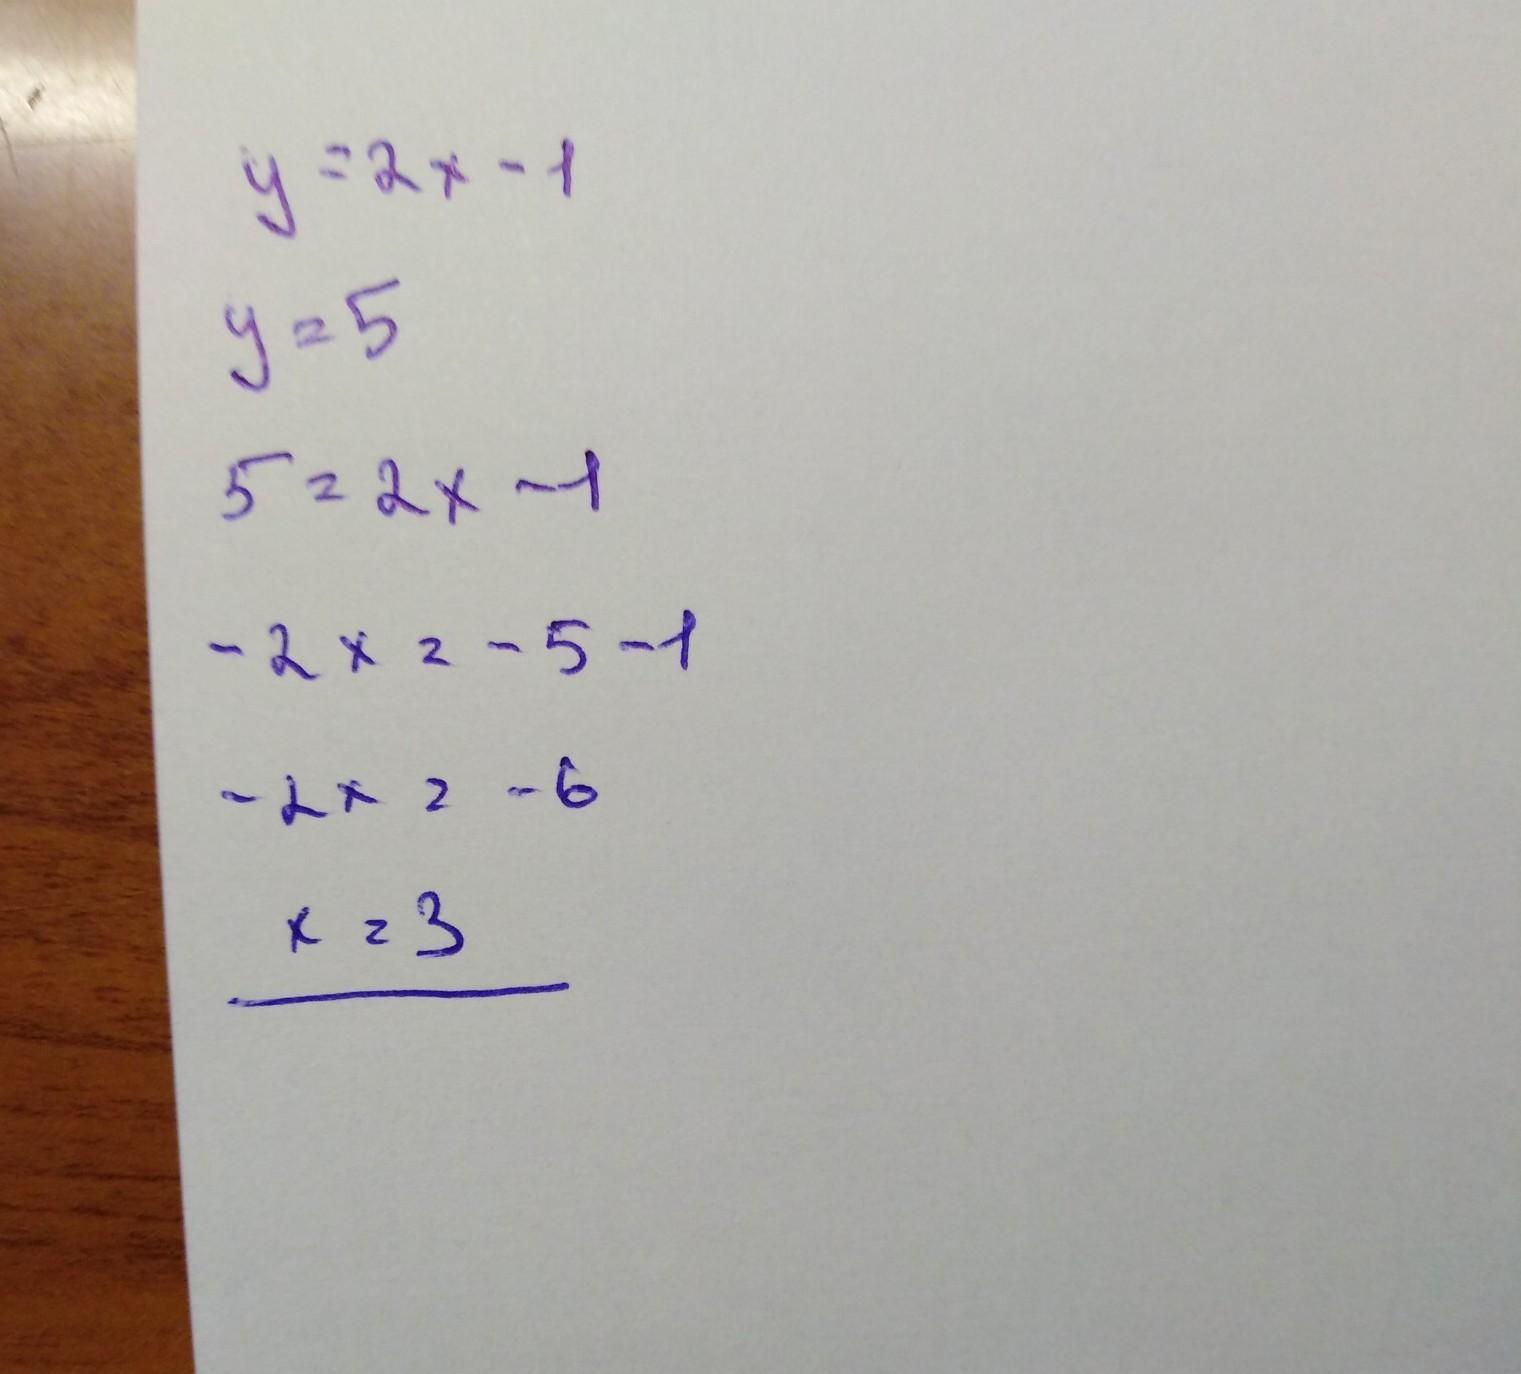 y = 2x - 1
y = 5
5 = 2x - 1
- 2x = - 5 - 1
- 2x = - 6
x = 3